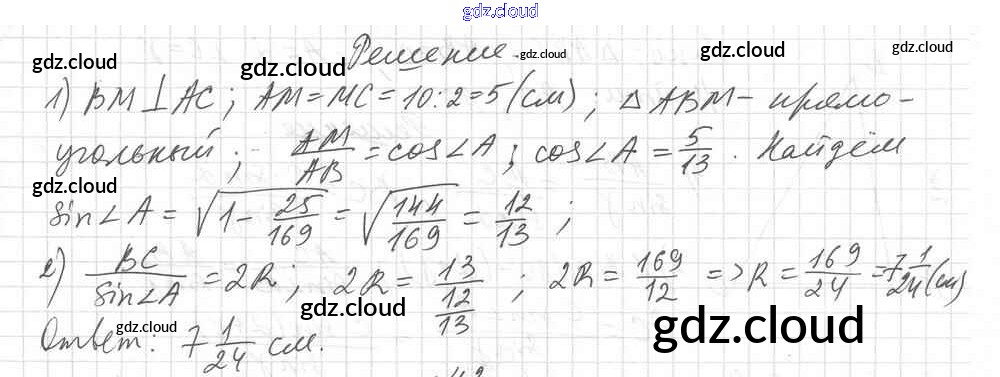 gdz.cloud
Решение. gdz.cloud gdz.cloud
gdz.cloud gdz.cloud
1) BM⊥AC; AM=MC=10:2=5(см); △ABM – прямо-
угольный; AM/AB = cos∠A; cos∠A = 5/13. Найдём
gdz.cloud
sin∠A = √(1 - 25/169) = √(144/169) = 12/13;
2) BC/sin∠A = 2R; 2R = 13/(12/13); 2R = 169/12 => R = 169/24 = 7 1/24 (см)
gdz.cloud gdz.cloud gdz.cloud
Ответ: 7 1/24 см.